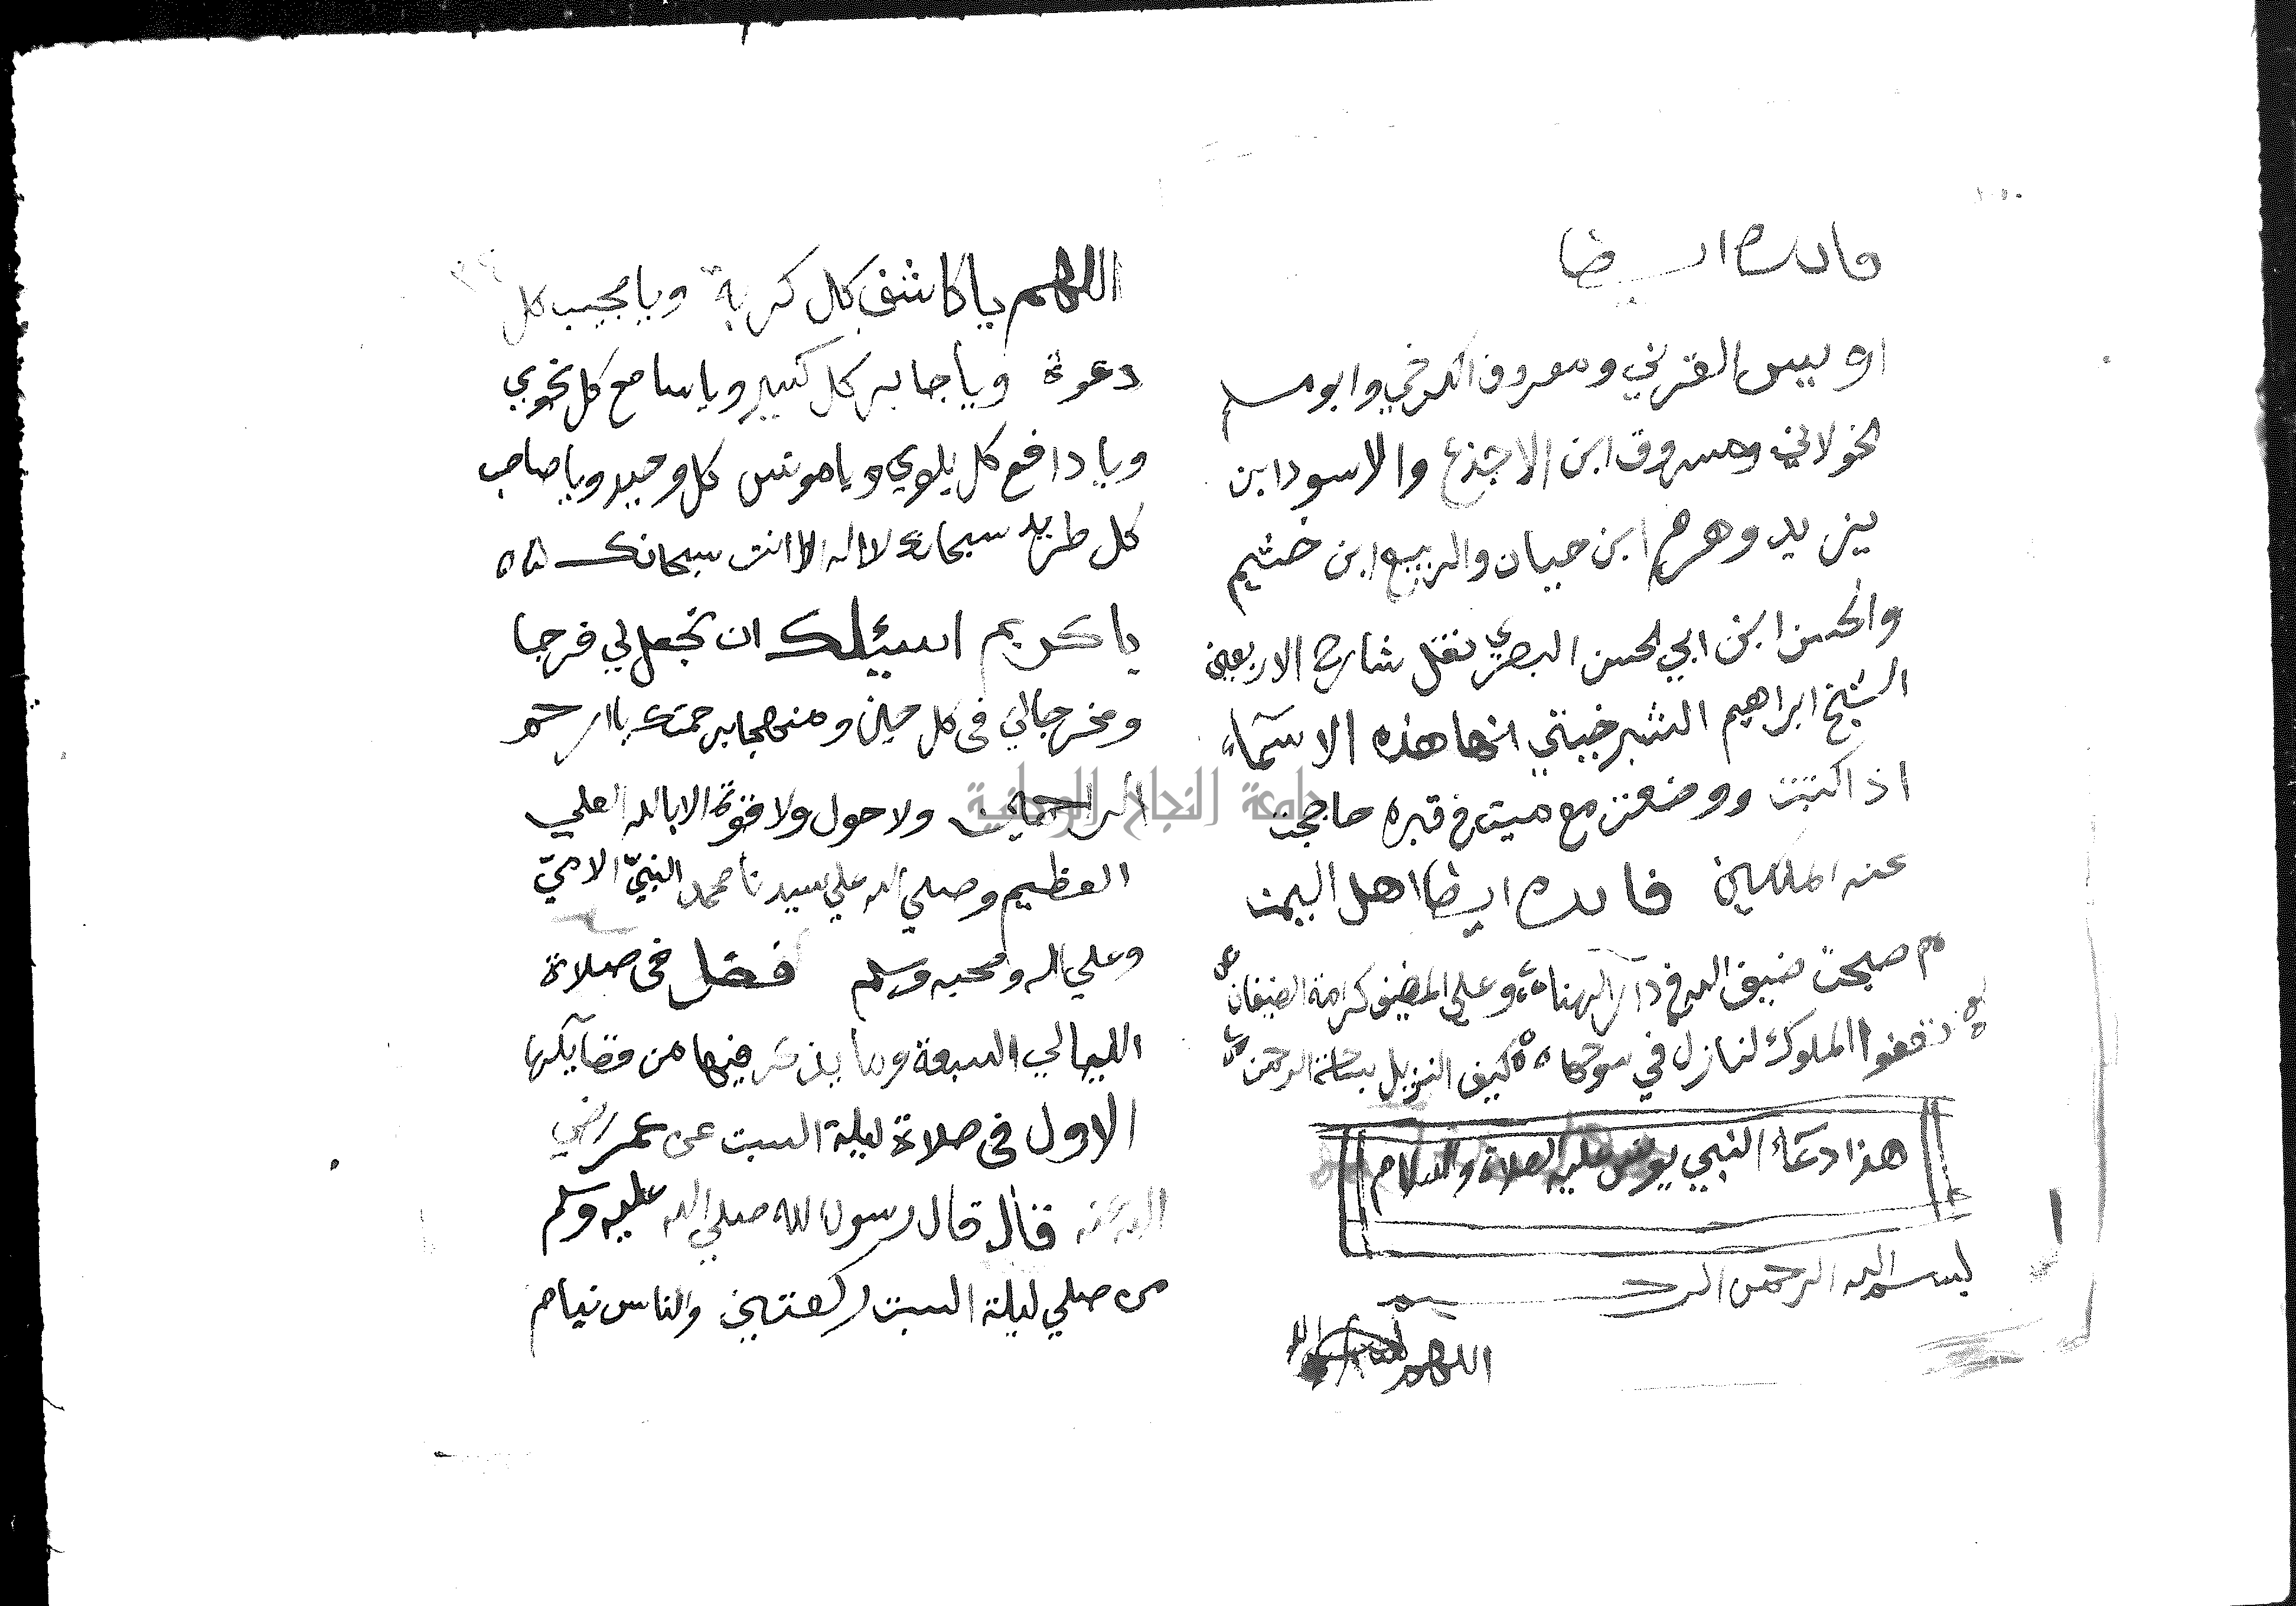 فايده ايضا
اويس القرني ومعروف الكرخي وابو مسلم
الخولاني ومسروق ابن الاجذع والاسود ابن
يزيد وهرم ابن حيان والربيع ابن خثيم
والحسن ابن ابي الحسن البصري نقل شارح الاربعين
الشيخ ابراهيم الشبرخيتي انها هذه الاسماء
اذا كتبت ووضعت مع ميت في قبره ما حجت
عنه الملكين فايده ايضا اهل اليمن
صبحت ضيف الله في دار الهناء وعلي المضيف كرامة الضيفان
تعفو الملوك لنازل في سوحها كيف النزيل بساحة الرحمن
هذا دعاء النبي يونس عليه الصلاة والسلام
بسم الله الرحمن الرحيم
اللهم
اللهم يا كاشف كل كربة ويا مجيب كل
دعوة ويا جابر كل كسير ويا سامع كل نجوي
ويا دافع كل بلوي ويا مونس كل وحيد ويا صاحب
كل طريد سبحانك لا اله الا انت سبحانك
يا كريم اسيئلك ان تجعل لي فرجا
ومخرجا لي في كل حين ومنهجا برحمتك يا ارحم
الراحمين ولا حول ولا قوة الا بالله العلي
العظيم وصلي الله علي سيدنا محمد النبيّ الاميّ
وعلي اله وصحبه وسلم فصل في صلاة
الليالي السبعة وما يذكر فيها من فضايلها
الاول في صلاة ليلة السبت عن عمر رضي
الله عنه قال قال رسول الله صلي الله عليه وسلم
من صلي ليلة السبت ركعتين والناس نيام
جامعة النجاح الوطنية